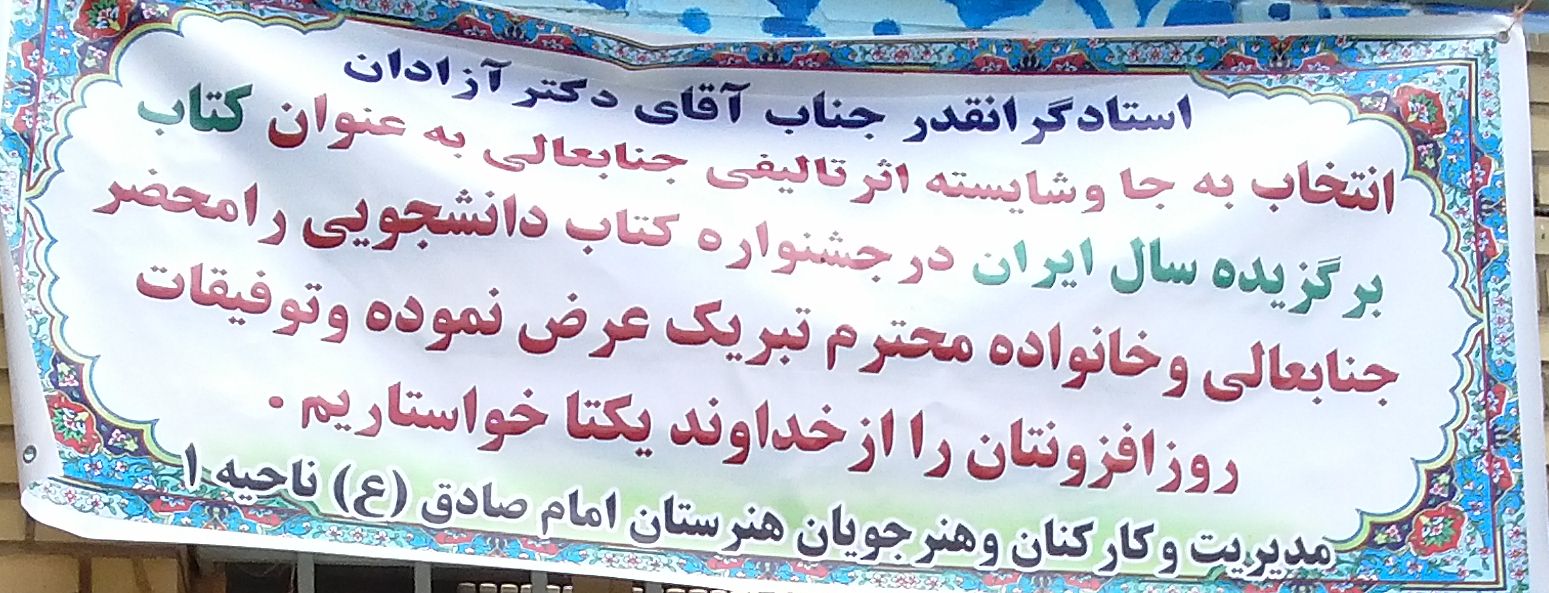 استادگرانقدر جناب آقای دکتر آزادان
انتخاب به جا وشایسته اثرتالیفی جنابعالی به عنوان کتاب
برگزیده سال ایران درجشنواره کتاب دانشجویی رامحضر
جنابعالی وخانواده محترم تبریک عرض نموده وتوفیقات
روزافزونتان را ازخداوند یکتا خواستاریم .
مدیریت وکارکنان وهنرجویان هنرستان امام صادق (ع) ناحیه ۱